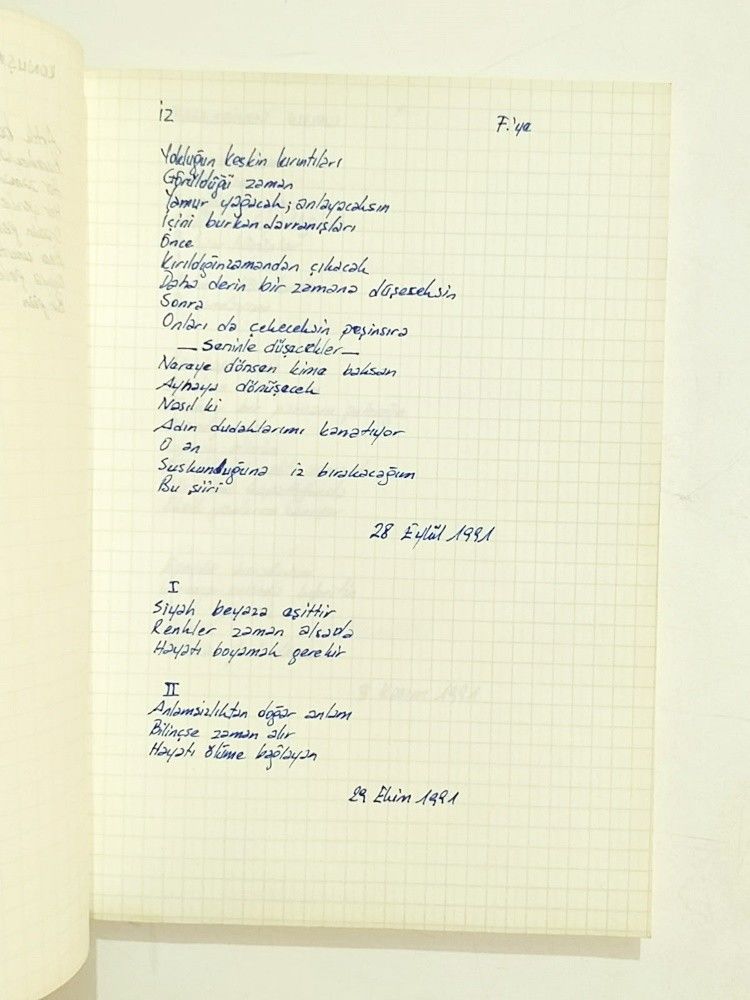 İZ
F.'ya
Yokluğun keskin kırıntıları
Görüldüğü zaman
Yamur yağacak; anlayacaksın
İçini burkan davranışları
Önce
Kırıldığınzamandan çıkacak
Daha derin bir zamana düşeseksin
Sonra
Onları da çekeceksin peşinsıra
—Seninle düşecekler—
Nereye dönsen kime baksan
Aynaya dönüşecek
Nasıl ki
Adın dudaklarımı kanatıyor
O an
Suskunduğuna iz bırakacağım
Bu şiiri
28 Eylül 1991
I
Siyah beyaza eşittir
Renkler zaman alsada
Hayatı boyamak gerekir
II
Anlamsızlıktan doğar anlam
Bilinçse zaman alır
Hayatı ölüme bağlayan
29 Ekim 1991